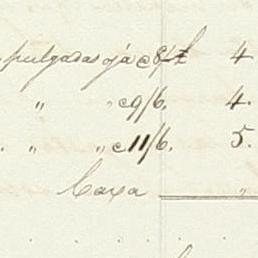 pulgadas já c 8/- £ 4
" " c 9/6. 4.
" " c 11/6. 5.
Caxa "